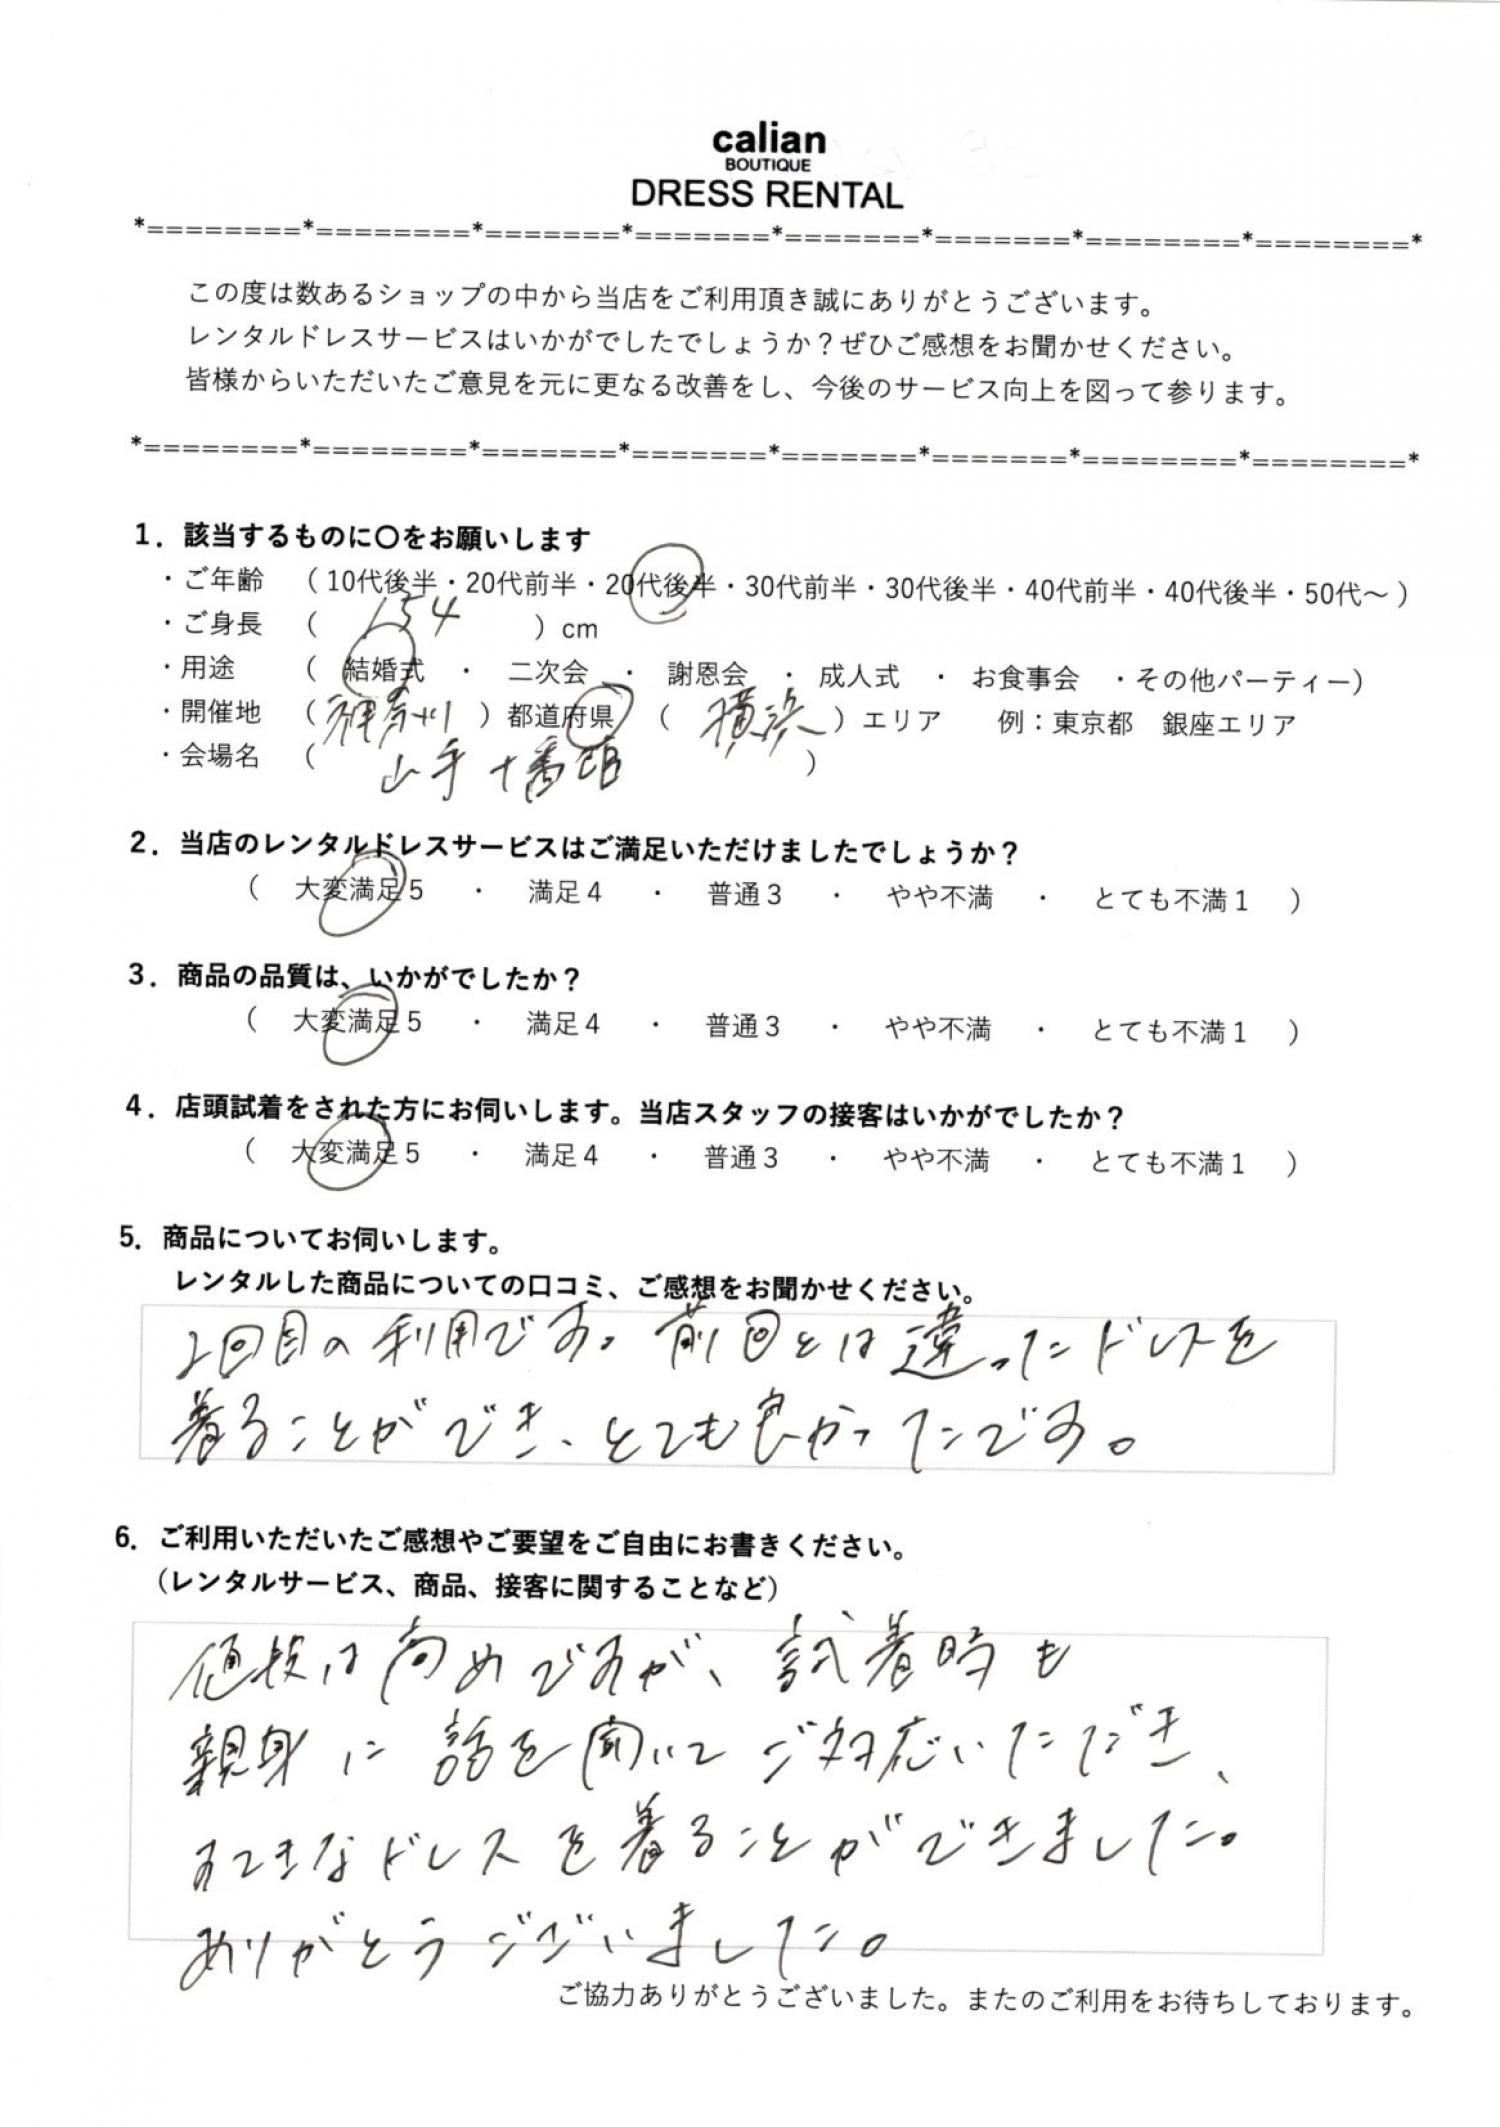 calian
BOUTIQUE
DRESS RENTAL
*========*========*=======*=======*=======*=======*========*========*
この度は数あるショップの中から当店をご利用頂き誠にありがとうございます。
レンタルドレスサービスはいかがでしたでしょうか？ぜひご感想をお聞かせください。
皆様からいただいたご意見を元に更なる改善をし、今後のサービス向上を図って参ります。
*========*========*=======*=======*=======*=======*========*========*
1．該当するものに〇をお願いします
・ご年齢 （ 10代後半・20代前半・20代後半・30代前半・30代後半・40代前半・40代後半・50代～ ）
・ご身長 （ 154 ）cm
・用途 （ 結婚式 ・ 二次会 ・ 謝恩会 ・ 成人式 ・ お食事会 ・その他パーティー）
・開催地 （ 神奈川 ）都道府県 （ 横浜 ）エリア 例：東京都 銀座エリア
・会場名 （ 山手十番館 ）
2．当店のレンタルドレスサービスはご満足いただけましたでしょうか？
（ 大変満足５ ・ 満足４ ・ 普通３ ・ やや不満 ・ とても不満１ ）
3．商品の品質は、いかがでしたか？
（ 大変満足５ ・ 満足４ ・ 普通３ ・ やや不満 ・ とても不満１ ）
4．店頭試着をされた方にお伺いします。当店スタッフの接客はいかがでしたか？
（ 大変満足５ ・ 満足４ ・ 普通３ ・ やや不満 ・ とても不満１ ）
5．商品についてお伺いします。
レンタルした商品についての口コミ、ご感想をお聞かせください。
2回目の利用です。前回とは違ったドレスを
着ることができ、とても良かったです。
6．ご利用いただいたご感想やご要望をご自由にお書きください。
（レンタルサービス、商品、接客に関することなど）
値段は高めですが、試着時も
親身に話を聞いてご対応いただき、
すてきなドレスを着ることができました。
ありがとうございました。
ご協力ありがとうございました。またのご利用をお待ちしております。